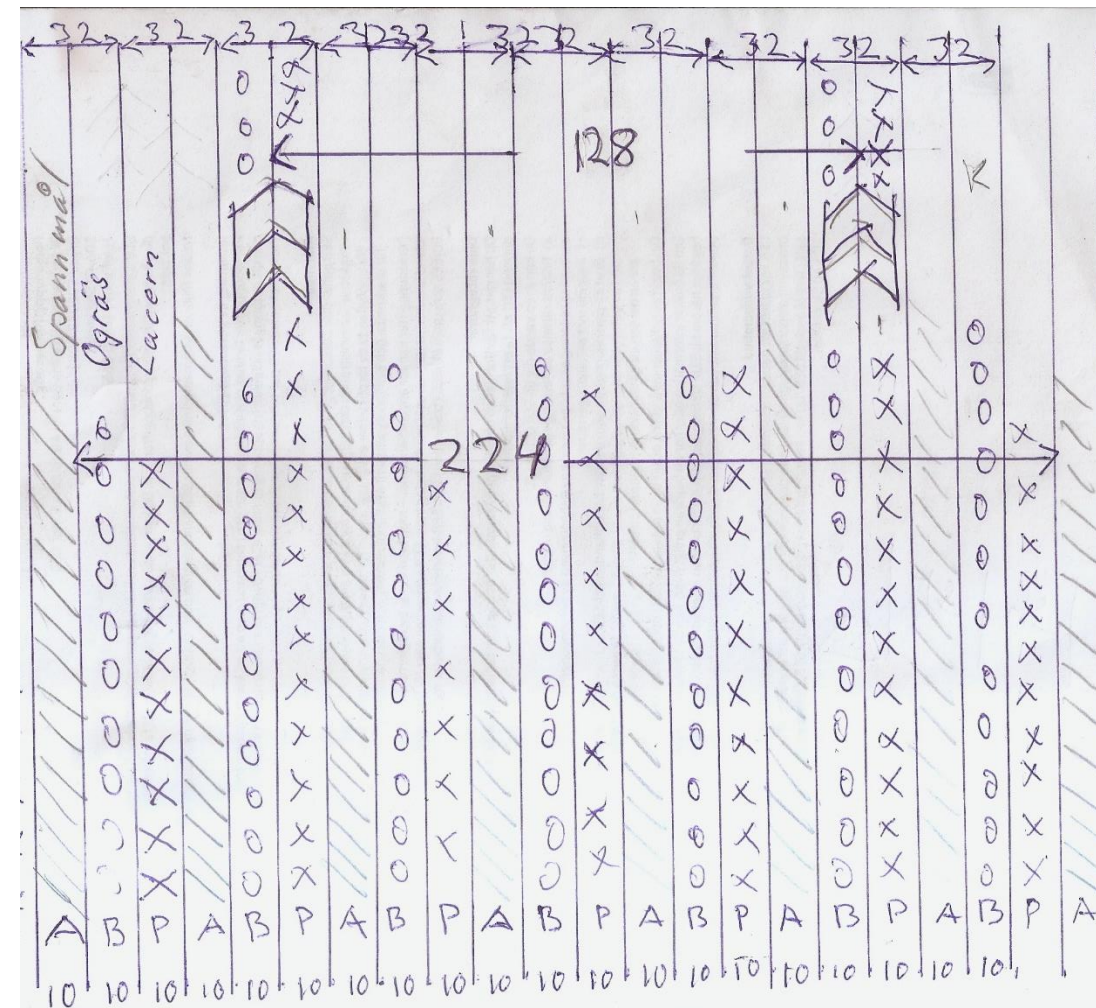 32 32 3 2 32 32 32 32 32 32 32
128
Spannmål
Ogräs
Lucern
224
A B P A B P A B P A B P A B P A B P A B P A
10 10 10 10 10 10 10 10 10 10 10 10 10 10 10 10 10 10 10 10